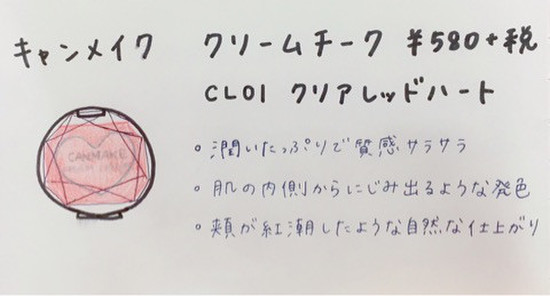 キャンメイク クリームチーク ¥580+税
CL01 クリアレッドハート
CANMAKE
。潤いたっぷりで質感サラサラ
。肌の内側からにじみ出るような発色
。頬が紅潮したような自然な仕上がり